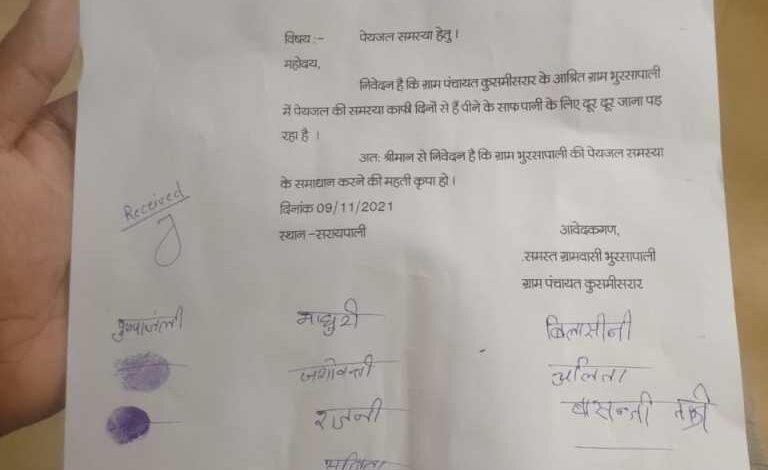 विषय :- पेयजल समस्या हेतु ।
महोदय,
निवेदन है कि ग्राम पंचायत कुसमीसरार के आश्रित ग्राम भुरसापाली
में पेयजल की समस्या काफी दिनों से हैं पीने के साफ पानी के लिए दूर दूर जाना पड़
रहा है ।
अतः श्रीमान से निवेदन है कि ग्राम भुरसापाली की पेयजल समस्या
के समाधान करने की महती कृपा हो ।
Received
दिनांक 09/11/2021
स्थान -सरायपाली
आवेदकगण,
समस्त ग्रामवासी भुरसापाली
ग्राम पंचायत कुसमीसरार
पुष्पांजली माधुरी बिलासीनी
जशोवन्ती अलिता
रजनी बासन्ती